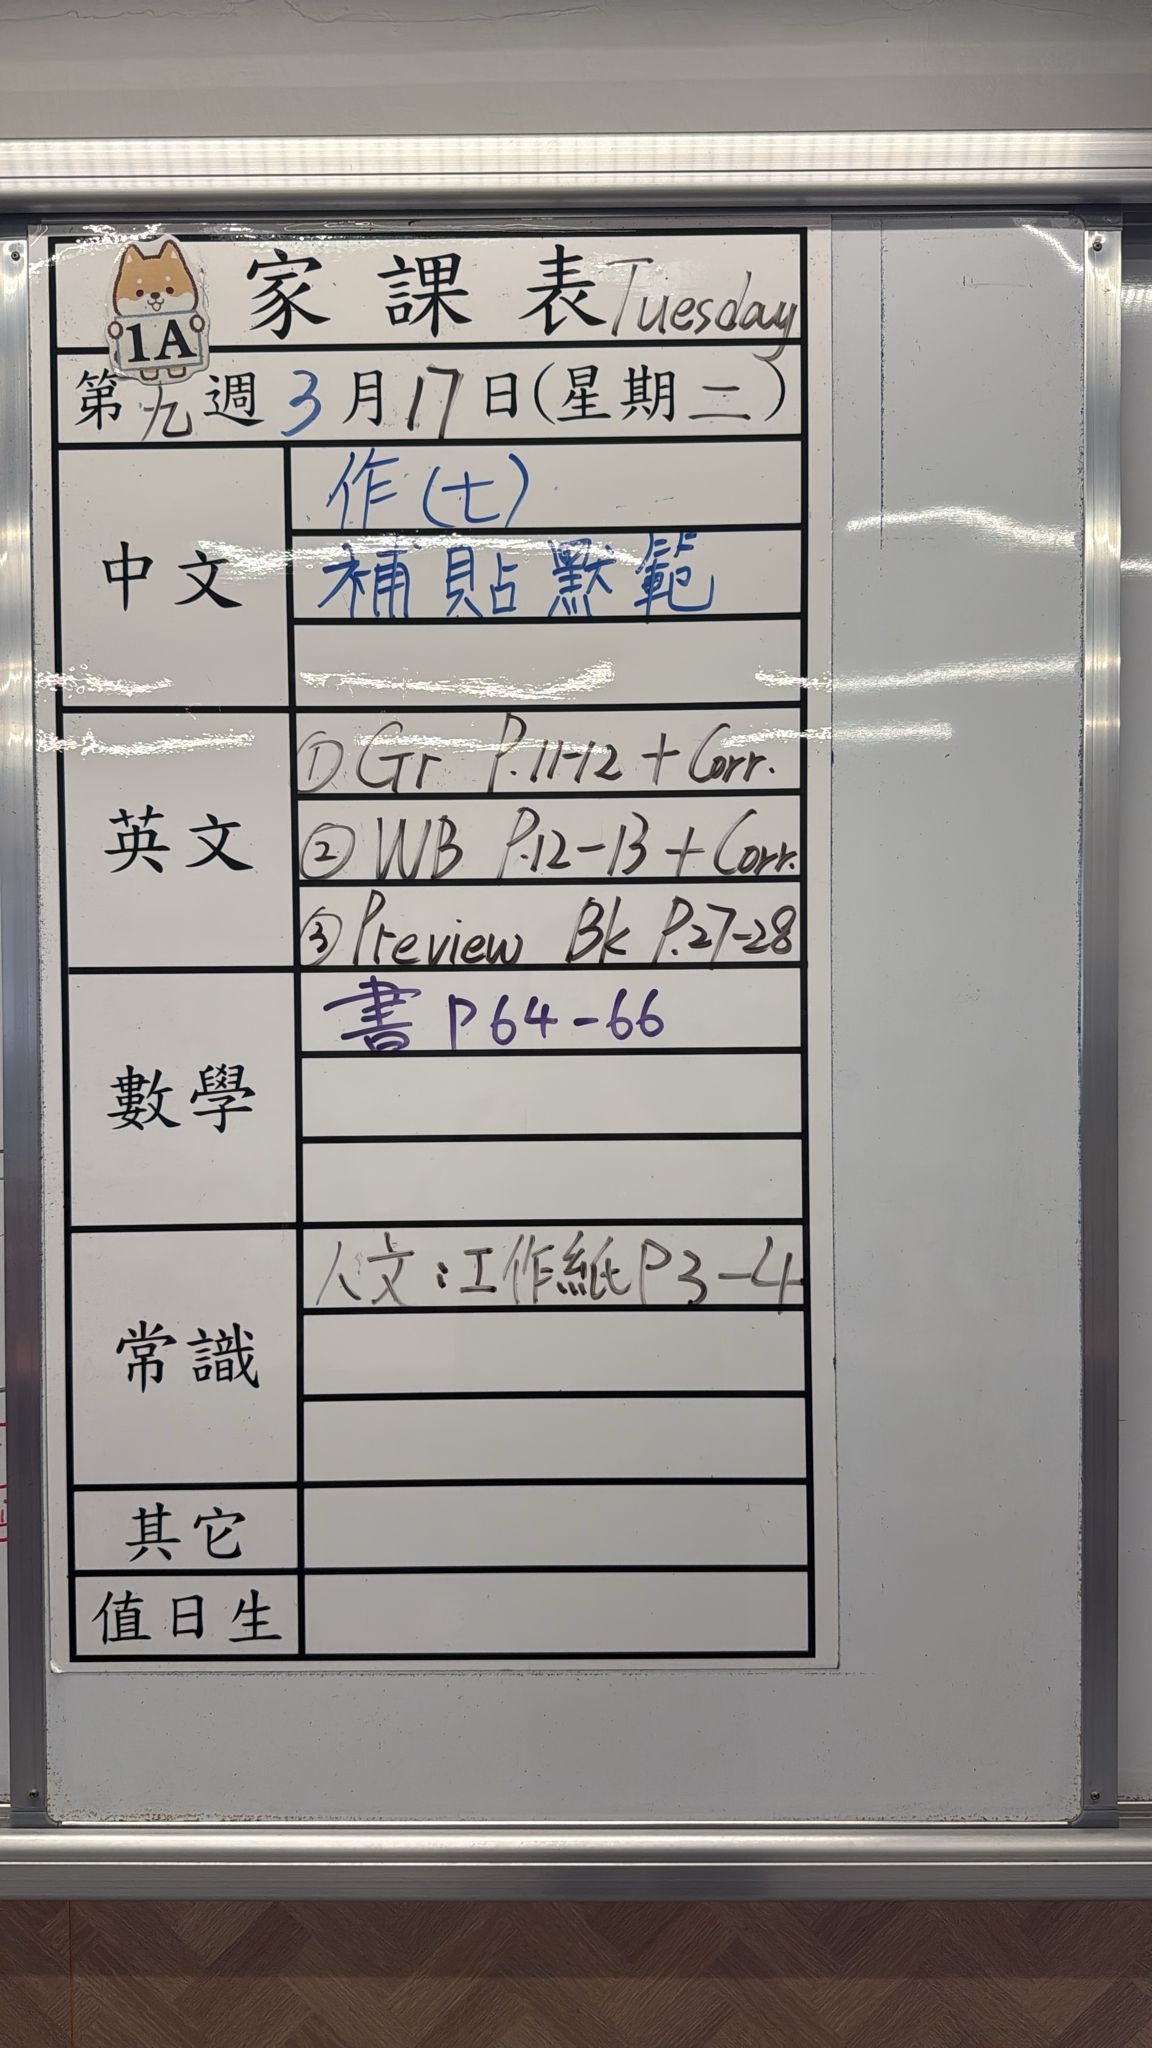 1A
家課表 Tuesday
第九週 3月17日(星期二)
中文
作(七)
補貼默範
英文
① Gr P.11-12 + Corr.
② WB P.12-13 + Corr.
③ Preview Bk P.27-28
數學
書 P64-66
常識
人文：工作紙P3-4
其它
值日生